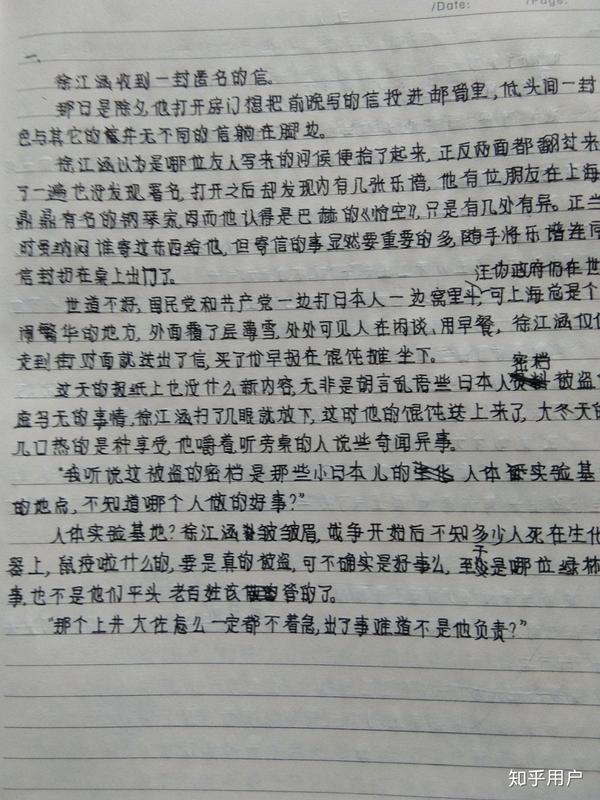 /Date:
/Page:
一、
徐江涵收到一封匿名的信。
那日是除夕,他打开房门想把前晚写的信投进邮筒里,低头间一封
色与其它的信并无不同的信躺在脚边。
徐江涵以为是哪位友人写来的问候便拾了起来,正反两面都翻过来
了一遍也没发现署名,打开之后却发现内有几张乐谱,他有位朋友在上海
鼎鼎有名的钢琴家,因而他认得是巴赫的《悟空》,只是有几处有异。正当
时要纳闷谁寄过东西给他,但寄信的事显然要重要的多,随手将乐谱连同
信封扔在桌上出门了。
汪伪政府仍在世
世道不好,国民党和共产党一边打日本人一边窝里斗,可上海总是个
闹繁华的地方,外面覆了层薄雪,处处可见人在闲谈、用早餐,徐江涵仅仅
走到街对面就送出了信,买了份早报在馄饨摊坐下。
密档
这天的报纸上也没什么新内容,无非是胡言乱语些日本人被盗
应当无的事情,徐江涵扫了几眼就放下,这时他的馄饨送上来了,大冬天的
几口热的是种享受,他嚼着听旁桌的人说些奇闻异事。
“我听说这被盗的密档是那些小日本儿的人体实验基
的地点,不知道哪个人做的好事?”
人体实验基地?徐江涵皱皱眉,战争开始后不知多少人死在生化
器上,鼠疫啦什么的,要是真的被盗,可不确实是好事么,至于是哪位绿林
事,也不是他们平头老百姓该管的了。
“那个上井大佐怎么一定都不着急,出了事难道不是他负责?”
知乎用户